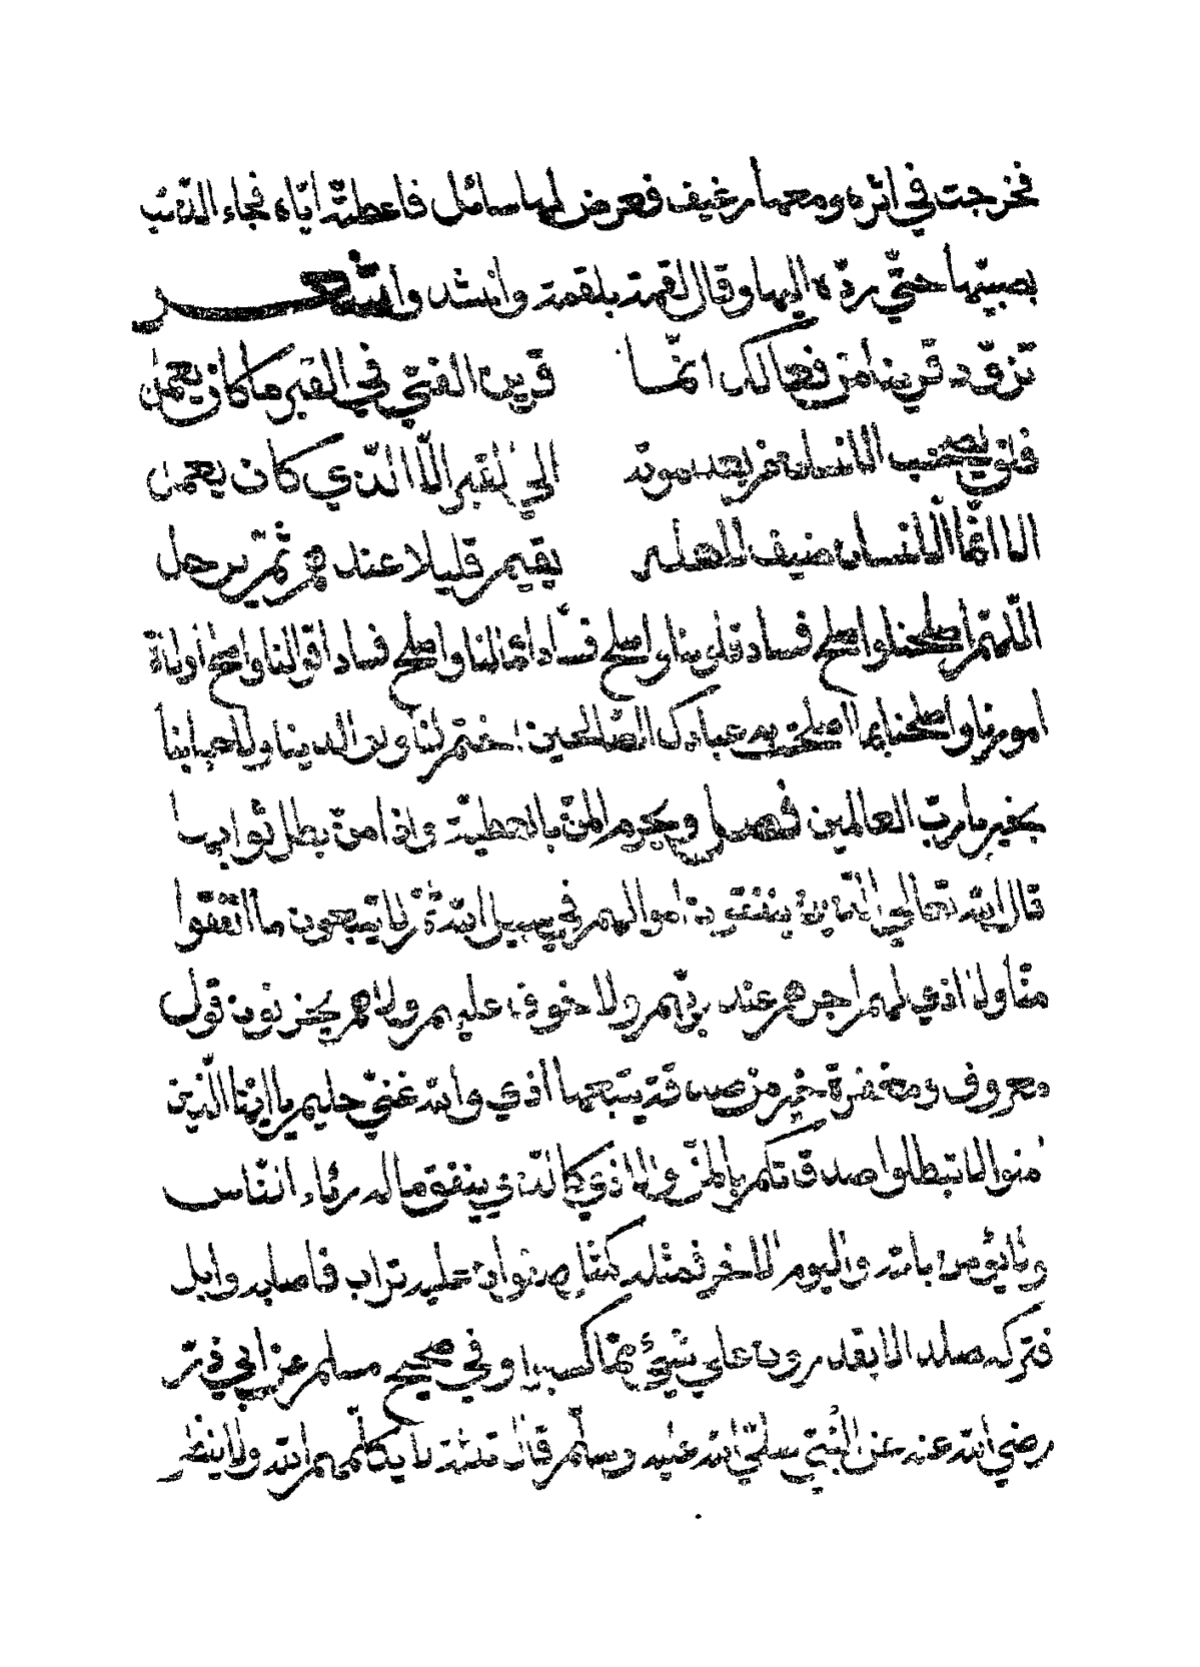 فخرجت في اثره ومعها رغيف فعرض لها سائل فاعطته ايّاه فجاء الذئب
بصبيّها حتّي ردّه اليها وقال لقمة بلقمة وانشد وا شعر
تزوّد قرينا من فعالك انّما قرين الفتي في القبر ما كان يعمل
فلن يصحب الانسان من بعد موته الي القبر الّا الّذي كان يعمل
الا انّما الانسان ضيف لاهله يقيم قليلا عندهم ثمّ يرحل
اللّهمّ اصلحنا واصلح فساد قلوبنا واصلح فساد اعمالنا واصلح فساد اقوالنا واصلح ولاة
امورنا واصلحنا بما اصلحت به عبادك الصّالحين اختم لنا ولوالدينا ولاحبابنا
بخير يا ربّ العالمين فصل ويحرم المنّ بالعطيّة واذا منّ بطل ثوابها
قال الله تعالي الّذين ينفقون اموالهم في سبيل الله ثمّ لا يتبعون ما انفقوا
منّا ولا اذي لهم اجرهم عند ربّهم ولا خوف عليهم ولا هم يحزنون قول
معروف ومغفرة خير من صدقة يتبعها اذي والله غنيّ حليم يا ايّها الّذين
امنوا لا تبطلوا صدقاتكم بالمنّ والاذي كالّذي ينفق ماله رئاء النّاس
ولا يؤمن بالله واليوم الاخر فمثله كمثل صفوان عليه تراب فاصابه وابل
فتركه صلدا لا يقدرون علي شيئ ممّا كسبوا وفي صحيح مسلم عن ابي ذرّ
رضي الله عنه عن النّبيّ صلّي الله عليه وسلّم قال ثلثة لا يكلّمهم الله ولا ينظر